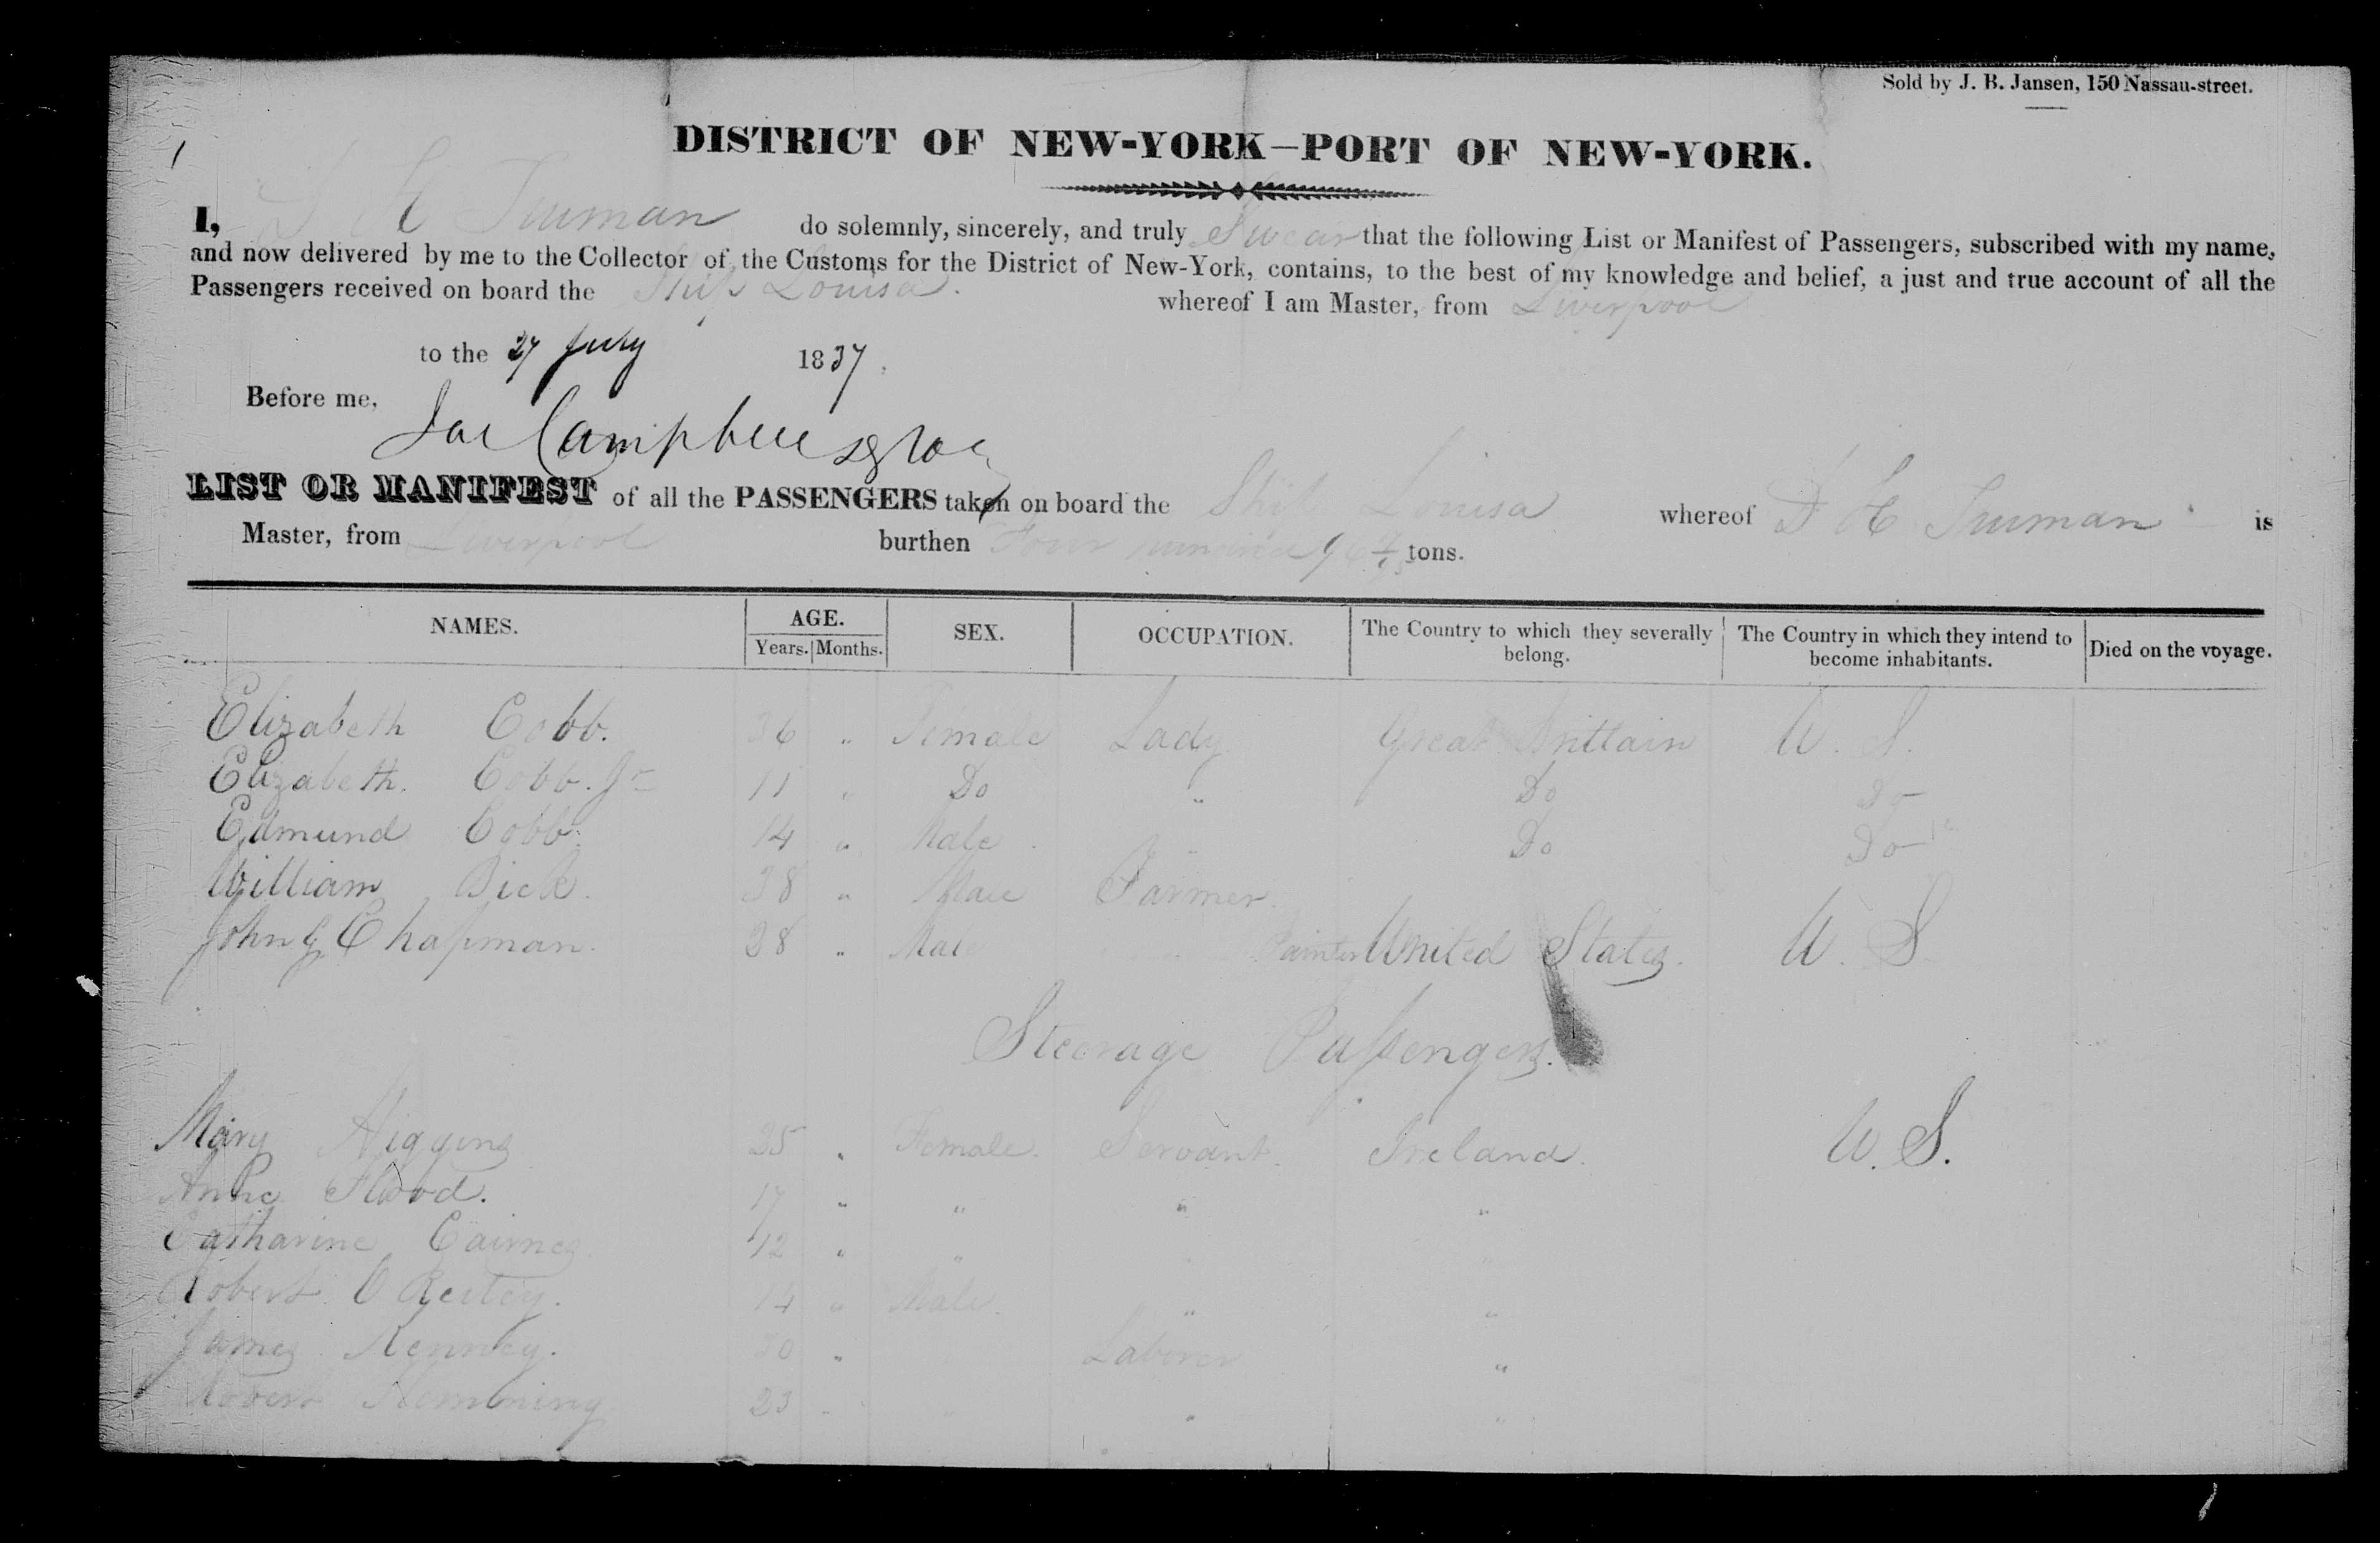 Sold by J. B. Jansen, 150 Nassau-street.
DISTRICT OF NEW-YORK—PORT OF NEW-YORK.
I, D H Truman do solemnly, sincerely, and truly Swear that the following List or Manifest of Passengers, subscribed with my name,
and now delivered by me to the Collector of the Customs for the District of New-York, contains, to the best of my knowledge and belief, a just and true account of all the
Passengers received on board the Ship Louisa. whereof I am Master, from Liverpool
to the 27 July 1837.
Before me,
Campbell
LIST OR MANIFEST of all the PASSENGERS taken on board the Ship Louisa whereof Truman is
Master, from Liverpool burthen Four hundred tons.
NAMES. AGE. SEX. OCCUPATION. The Country to which they severally belong. The Country in which they intend to become inhabitants. Died on the voyage.
Years. Months.
Elizabeth Cobb. 36 " Female Lady Great Brittain U. S.
Elizabeth. Cobb. Jr 11 " Do " Do Do
Edmund Cobb. 14 " Male " Do Do
William Bick. 38 " Male Farmer.
John G Chapman. 28 " Male Painter United States. U. S
Steerage Passengers.
Mary Higgins 25 " Female. Servant. Ireland. U. S.
Anne Flood. 17 " " " "
Catharine Cairnes 12 " " " "
Robert O Reiley. 14 " Male. " "
James Kenney. 30 " Laborer "
Robert Hemming 23 " " " "